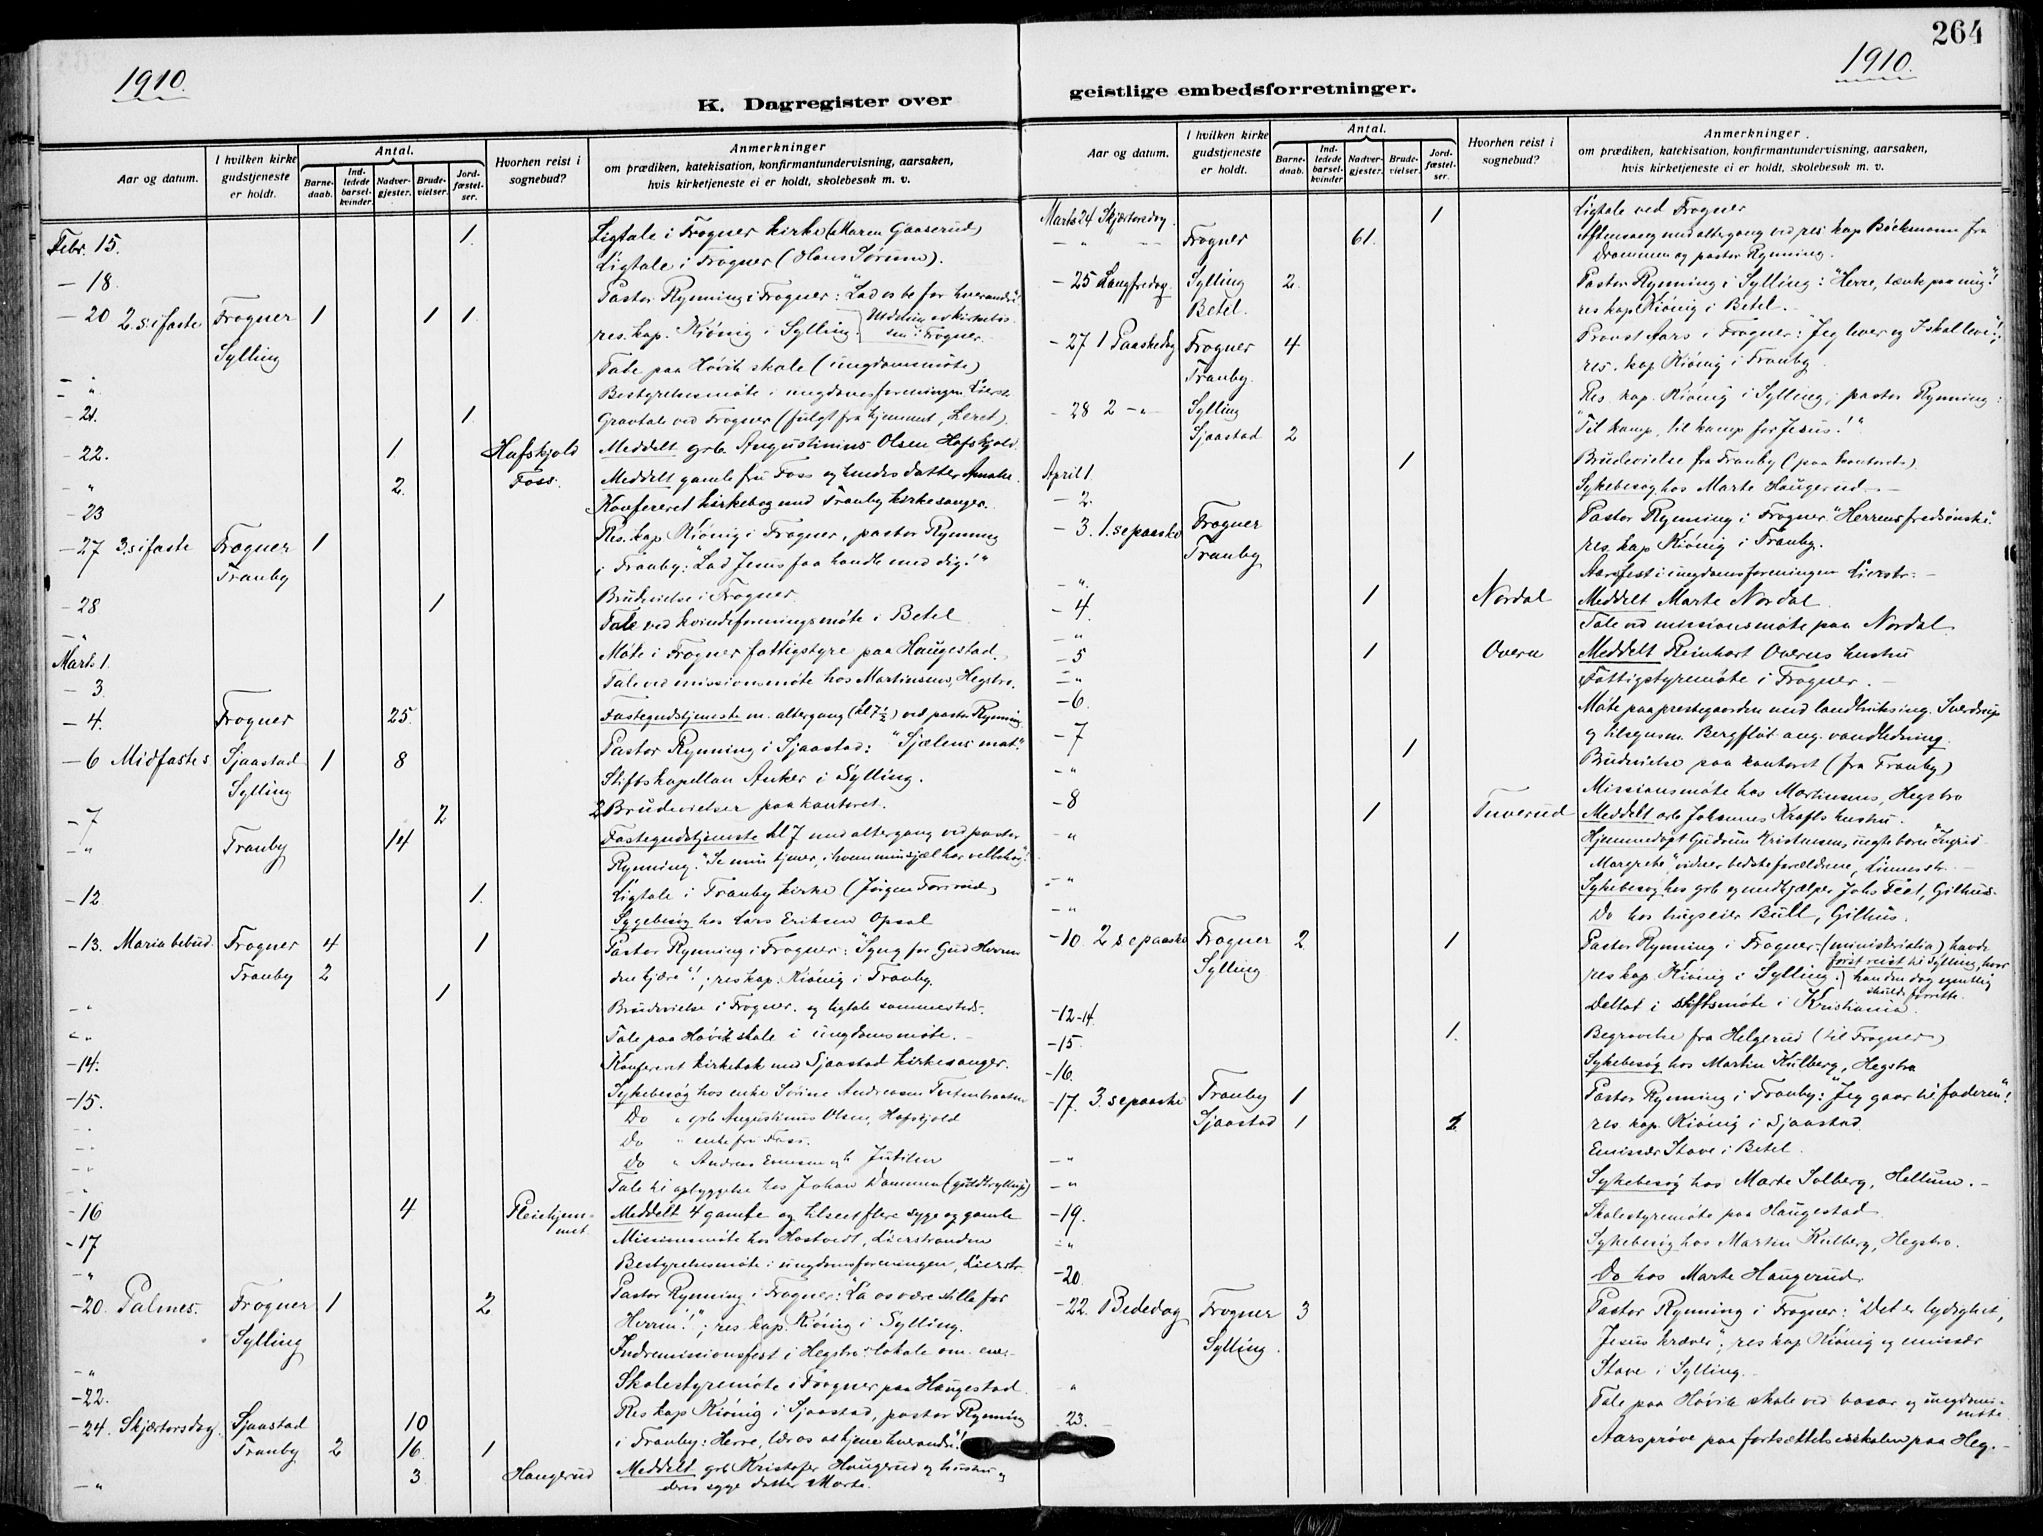 264
1910.
1910.
K. Dagregister over geistlige embedsforretninger.
Aar og datum.
I hvilken kirke gudstjeneste er holdt.
Antal.
Barne-daab.
Ind-ledede barsel-kvinder
Nadver-gjester.
Brude-vielser.
Jord-fæstel-ser.
Hvorhen reist i sognebud?
Anmerkninger
om prædiken, katekisation, konfirmantundervisning, aarsaken,
hvis kirketjeneste ei er holdt, skolebesøk m. v.
Febr. 15. 1. Ligtale i Frogner kirke (Maren Gaaserud)
- 18. Ligtale i Frogner (Hans Sørum).
- 20 2. s. i faste Frogner 1 1 1. Pastor Rynning i Frogner: "Lad os be for hverandre"!
Sylling res. kap. Kiönig i Sylling.
- " Tale paa Høvik skole (ungdomsmøte)
- " Bestyrelsesmøte i ungdomsforeningen Lierstr.
- 21. 1 Gravtale ved Frogner (fulgt fra hjemmet, Leret)
- 22. 1 Hafskjold Meddelt grb. Augustinius Olsen Hafskjold
" 2. Foss. Meddelt gamle fru Foss og hendes datter Amalie.
- 23 Konfereret kirkebog med Tranby kirkesanger.
- 27 3. s. i faste Frogner 1 Res. kap Kiönig i Frogner, pastor Rynning
Tranby i Tranby: "Lad Jesus faa handle med dig!"
- 28 1 Brudevielse i Frogner.
- " Tale ved kvindeforeningsmøte i Betel
Marts 1. Møte i Frogner fattigstyre paa Haugestad.
- 3. Tale ved missionsmøte hos Martinsens, Hegsbro.
- 4. Frogner 25. Fastegudstjeneste m. altergang (kl 7½) ved pastor Rynning
- 6 Midfastes. Sjaastad 1 8 Pastor Rynning i Sjaastad: "Sjælens mat".
Sylling Stiftskapellan Anker i Sylling.
- 7 2 2 Brudevielser paa kontoret.
- " Tranby 14 Fastegudstjeneste kl 7 med altergang ved pastor
Rynning. "Se min tjener, i hvem min sjæl har velbehag"!
- 12 1. Ligtale i Tranby kirke (Jørgen Forsrud)
Sygebesøg hos Lars Eriksen Opsal
- 13. Maria bebud. Frogner 4 1 Pastor Rynning i Frogner: "Syng for Gud Herren
Tranby 2 den kjære"!; res kap. Kiönig i Tranby.
- " 1 Brudevielse i Frogner. og ligtale sammesteds.
- " Tale paa Høvik skole i ungdomsmøte.
- 14. Konfereret kirkebok med Sjaastad kirkesanger.
- 15. Sykebesøg hos enke Sørine Andreasen
Do " grb. Augustinus Olsen, Hafskjold
Do " enkefru Foss.
Do " Andreas
" Tale til opbyggelse hos Johan Dammen (guldbryllup)
- 16 4 Pleiehjem-met. Meddelt 4 gamle og tilseet flere syge og gamle
- 17 Missionsmøte hos Hostvedt, Lierstranden
- " Bestyrelsesmøte i ungdomsforeningen, Lierstr.
- 20. Palmes. Frogner 1 2 Pastor Rynning i Frogner: "La os være stille for
Sylling Herren!"; res kap. Kiönig i Sylling.
" Indremissionsfest i Hegsbro lokale om em.
- 22. Skolestyremøte i Frogner paa Haugestad.
- 24 Skjærtorsdag. Sjaastad 10 Res kap Kiönig i Sjaastad, pastor Rynning
Tranby 2 16. 1 i Tranby: Herre, lær os at tjene hverandre!
- " 3 Haugerud Meddelt grb Kristofer Haugerud og hustru og
deres syge datter Marte.
Aar og datum.
I hvilken kirke gudstjeneste er holdt.
Antal.
Barne-daab.
Ind-ledede barsel-kvinder
Nadver-gjester.
Brude-vielser.
Jord-fæstel-ser.
Hvorhen reist i sognebud?
Anmerkninger.
om prædiken, katekisation, konfirmantundervisning, aarsaken,
hvis kirketjeneste ei er holdt, skolebesøk m. v.
Marts 24 Skjærtorsdag. 1 Ligtale ved Frogner
- " Frogner 61. Aftensang med altergang ved res. kap Böckmann fra
Drammen og pastor Rynning.
- 25 Langfredag. Sylling 2. Pastor Rynning i Sylling: "Herre, tænk paa mig"!
Betel. res kap Kiönig i Betel.
- 27 1 Paaskedag Frogner 4 Provst Aars i Frogner: "Jeg lever og I skal leve"!;
Tranby. res. kap Kiönig i Tranby.
- 28 2 - " Sylling Res. kap. Kiönig i Sylling; pastor Rynning:
Sjaastad 2 "Til kamp, til kamp for Jesus!"
April 1. 1 Brudevielse fra Tranby (paa kontoret)
- 2. Sykebesøg hos Marte Haugerud.
- 3. 1. s e paaske Frogner Pastor Rynning i Frogner "Herrens fredsønske".
Tranby res. kap Kiönig i Tranby.
- " Aarsfest i ungdomsforeningen Lierstr.
- 4. 1 Nordal Meddelt Marte Nordal.
- " Tale ved missionsmøte paa Nordal.
- 5 1 Overn Meddelt Reinhart Overns hustru
- " Fattigstyremøte i Frogner.
- 6. Møte paa prestegaarden med landbruksing. Sverdrup
og tilsynsm. Bergfløt ang. vandledning.
- 7 1 Brudevielse paa kontoret (fra Tranby)
- " Missionsmøte hos Martinsens, Hegsbro
- 8 1 Tuverud Meddelt grb Johannes Krafts hustru.
" Hjemmedøpt Gudrun Kristensens uegte barn "Ingrid
Margrete", vidner bedsteforældrene, Linnestr.
- " Sykebesøg hos grb og medhjælper Johs Feet, Gilhus.
- " Do hos brugseier Bull, Gilhus.
- 10. 2 s e paaske Frogner 2. 1 Pastor Rynning i Frogner (ministerialia) havde
Sylling res kap. Kiönig i Sylling. først reist til Sylling, hvor
han den dag egentlig skulde forrette.
- 12-14. Deltat i stiftsmøte i Kristiania.
- 15. 1. Begravelse fra Helgerud (til Frogner)
- 16. Sykebesøg hos Martin Kulberg, Hegsbro
- 17. 3. s e paaske Tranby 1 Pastor Rynning i Tranby: "Jeg gaar til faderen"!
Sjaastad 1 2 res. kap. Kiönig i Sjaastad.
Emissær Stave i Betel.
- " Sykebesøg hos Marte Solberg, Hellum.
- 19. Skolestyremøte paa Haugestad.
- " Sykebesøg hos Martin Kulberg, Hegsbro.
- 20. Do hos Marte Haugerud.
- 22. Bededag Frogner 3 Pastor Rynning i Frogner: "Det er lydighet,
Sylling. Jesus kræver"; res kap Kiönig og emissær
Stave i Sylling.
" Tale paa Høvik skole ved basar og ungdoms-møte.
- 23. Aarsprøve paa fortsættelsesskolen paa Heg.